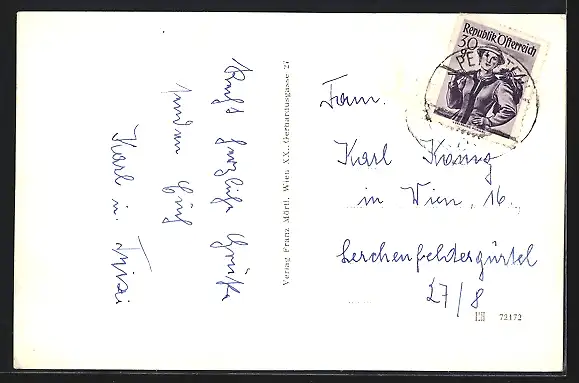 Recht herzliche Grüße
senden Euch
Karl u. Mizzi
Verlag Franz Mörtl, Wien XX., Gerhardusgasse 27
Republik Österreich
30
Fam.
Karl König
in Wien, 16.
Lerchenfeldergürtel
27/8
72172